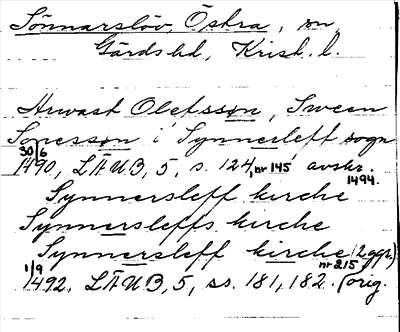 Sönnarslöv, Östra, sn
Gärds hd, Krist. l.
Arwast Olefsson, Sween
Sonesson i Synnerleff sogn
30/6 1490, LÄUB, 5, s. 124, nr 145 avskr. 1494.
Synnersleff kirche
Synnersleffs kirche
Synnersleff kirche (2 ggr)
1/9 1492, LÄUB, 5, ss. 181, 182. nr 215 (orig.